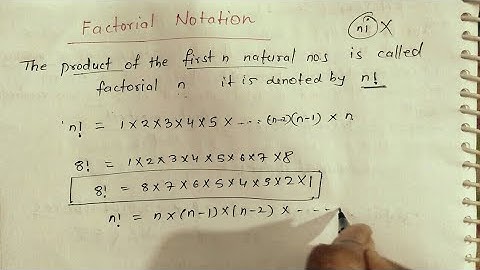 Factorial Notation
n¡ X
The product of the first n natural nos is called
factorial n it is denoted by n!
n! = 1×2×3×4×5×....(n-2)(n-1) × n
8! = 1×2×3×4×5×6×7×8
8! = 8×7×6×5×4×3×2×1
n! = n×(n-1)×(n-2) × ......